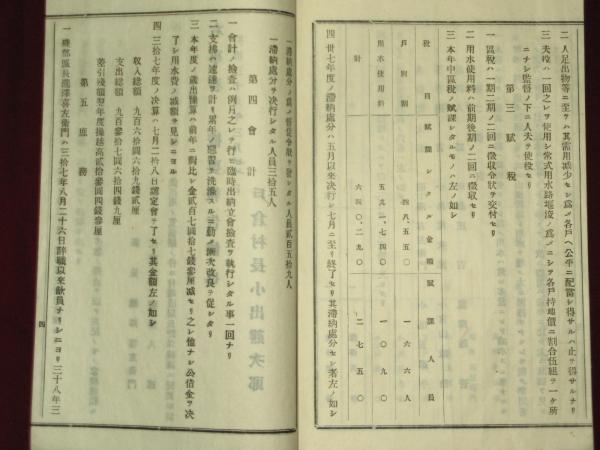 二人足出物等ニ至テハ其需用減少セシ爲メ各戸ヘ公平ニ配當シ得サルハ止ヲ得サルナリ
三夫役ハ一回之レヲ使用シ常式用水路堰浚ノ爲メニシテ各戸持地價ニ割合伍組ヲ一ケ所
ニナシ監督ノ下ニ人夫ヲ使役セリ
第三 賦税
一區税ハ一期二期ノ二回ニ徴収令狀ヲ交付セリ
二用水使用料ハ前期後期ノ二回ニ徴収セリ
三本年中區税ノ賦課シタルモノハ左ノ如シ
税目 賦課シタル金額 賦課人員
戸別割 四八、五五〇 一六六人
用水使用料 五九一、七四〇 一〇九〇
計 六四〇、二九〇 二七五〇
四丗七年度ノ滯納處分ハ五月以來决行シ七月ニ至リ終了セリ其滯納處分セシ者左ノ如シ
一滯納處分ノ爲メ督促令狀ヲ發シタル人員貳百五拾九人
一滯納處分ヲ决行シタル人員三拾五人
第四 會計
一會計ノ檢査ハ例月之レヲ行ヒ臨時出納立會檢査ヲ執行シタル事一回ナリ
二支拂ハ速達ヲ計リ累年ノ惡習ヲ洗滌スルニ勤メ漸次改良ヲ促シタリ
三本年度ノ歳出豫算ハ前年ニ比シ金貳百七圓拾七錢參厘减セリ之レ他ナシ公借金ヲ决
了シ用水費ノ减額ヲ見シニヨル
四三拾七年度ノ决算ハ七月二拾八日認定會ヲ了セリ其金額左ノ如シ
収入總額 九百六拾四圓六拾九錢貳厘
支出總額 九百參拾七圓六拾四錢九厘
差引殘額翌年度操越高貳拾參圓四錢參厘
第五 庶務
一磯部區長瀧澤喜左衞門ハ三拾七年八月二十六日辭職以來欽員ナリシニヨリ三十八年三
四